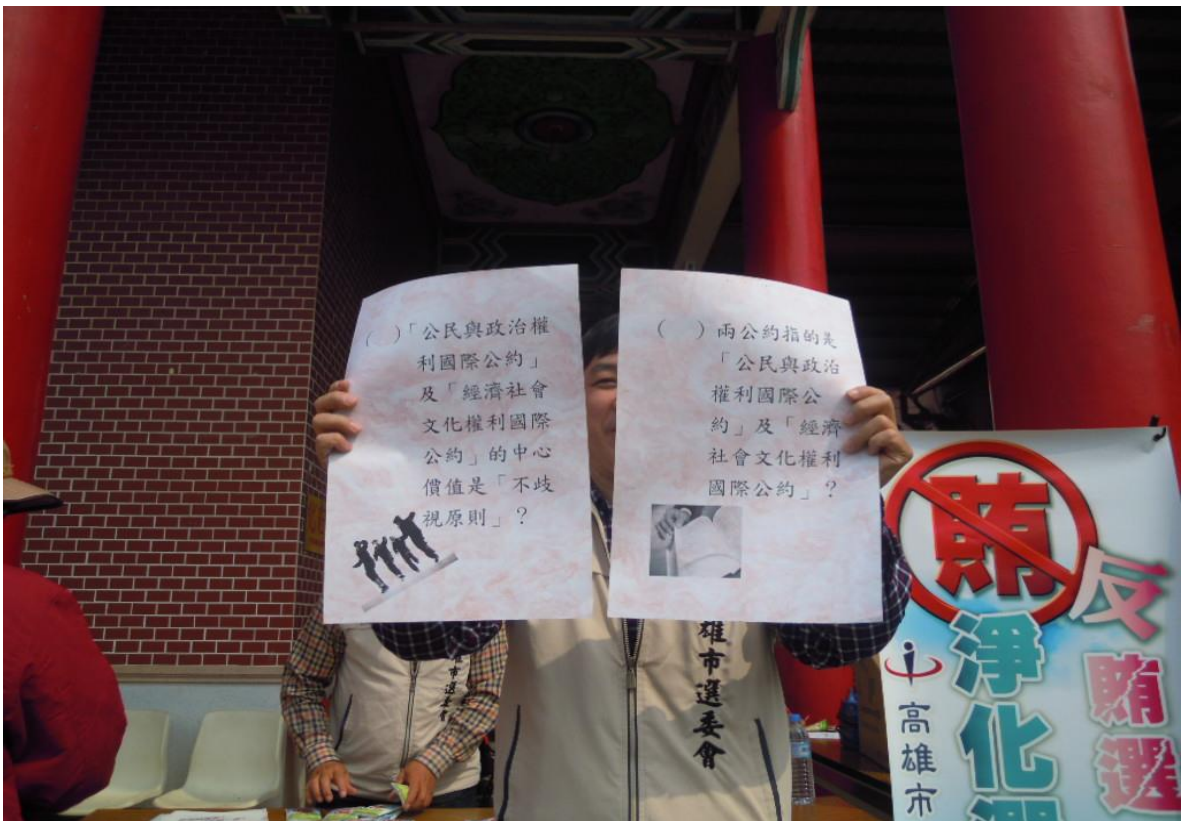 (　)「公民與政治權
利國際公約」
及「經濟社會
文化權利國際
公約」的中心
價值是「不歧
視原則」？
(　)兩公約指的是
「公民與政治
權利國際公
約」及「經濟
社會文化權利
國際公約」？
雄市選委會
市選委會
反賄選
賄
淨化選
高雄市